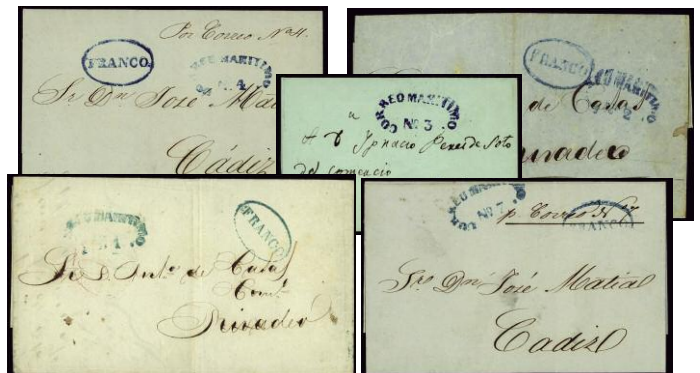 Por Correo Nº 4.
FRANCO.
CORREO MARITIMO
Nº 4
Sr Dn José Matia
Cádiz
FRANCO
MARITIMO
Nº 2
de Casas
CORREO MARITIMO
Nº 3
A D Ignacio Perez de Soto
del comercio
CORREO MARITIMO
Nº 1
FRANCO
Sr D. Antº de Casas
Rivadeo
CORREO MARITIMO
Nº 7
p. Correo Nº 7
FRANCO
Sr. Dn José Matia
Cadiz